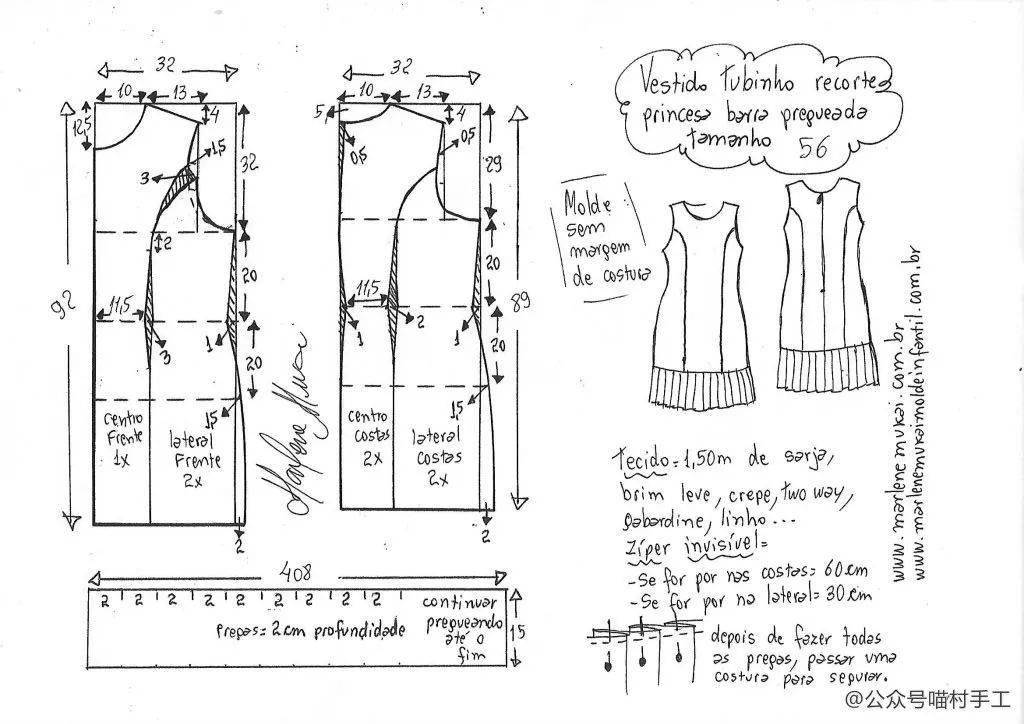 32
10
13
4
12,5
1,5
3
32
2
92
11,5
20
3
1
20
1,5
centro
Frente
1x
lateral
Frente
2x
2
32
10
13
5
4
0,5
0,5
29
20
11,5
2
1
1
89
20
1,5
centro
costas
2x
lateral
costas
2x
2
Vestido Tubinho recortes
princesa barra pregueada
tamanho 56
Molde
sem
margem
de costura
www.marlenemukai.com.br
www.marlenemukaimoldeinfantil.com.br
Tecido=1,50m de sarja,
brim leve, crepe, two way,
gabardine, linho...
Zíper invisível=
-Se for por nas costas= 60cm
-Se for por na lateral= 30cm
408
2 2 2 2 2 2 2 2 2 2
continuar
pregueando
até o
fim
pregas=2cm profundidade
15
depois de fazer todas
as pregas, passar uma
costura para segurar.
@公众号喵村手工